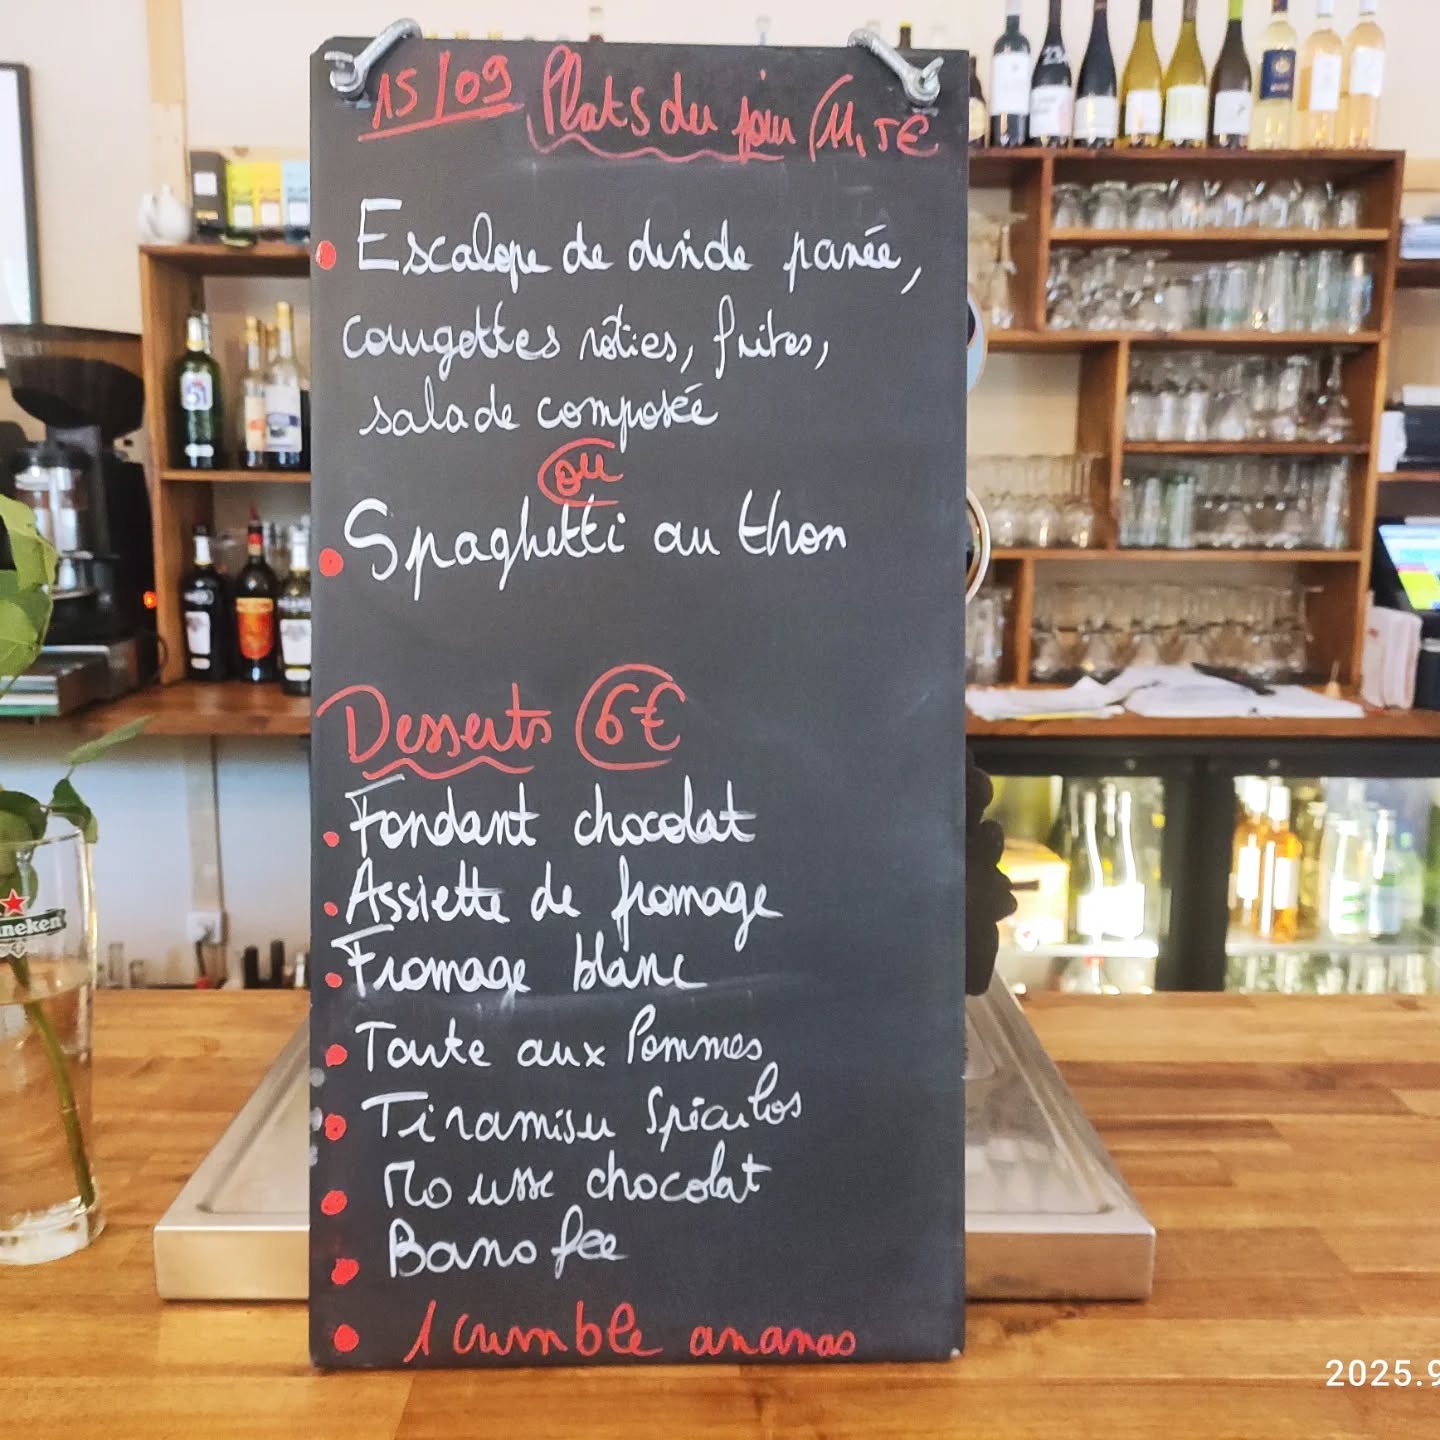 15/09 Plats du jour (11,5€
Escalope de dinde panée,
courgettes rôties, frites,
salade composée
ou
Spaghetti au thon
Desserts 6€
Fondant chocolat
Assiette de fromage
Fromage blanc
Tarte aux Pommes
Tiramisu Spéculos
Mousse chocolat
Banofee
1 crumble ananas
51
neken
2025.9